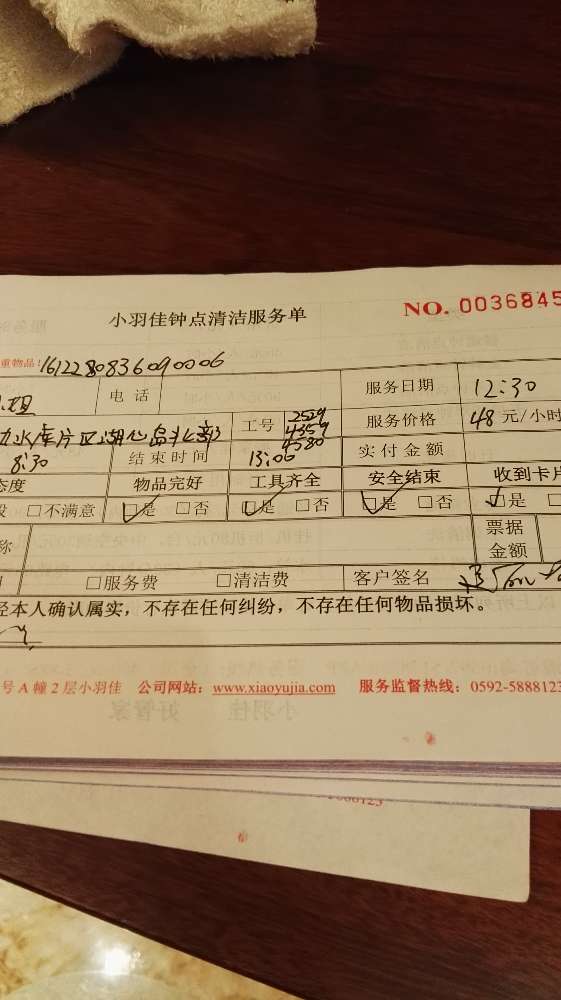 小羽佳钟点清洁服务单
NO. 0036845
重物品: 161228083609 0006
电话
服务日期 12:30
水库片区湖心岛北部 工号 2529 4359 4580 服务价格 48 元/小时
8:30 结束时间 13:00 实付金额
态度 物品完好 工具齐全 安全结束 收到卡片
□不满意 □是 □否 □是 □否 □是 □否 □是 □
称 票据金额
□服务费 □清洁费 客户签名
经本人确认属实，不存在任何纠纷，不存在任何物品损坏。
号 A 幢 2 层小羽佳 公司网站：www.xiaoyujia.com 服务监督热线：0592-5888123